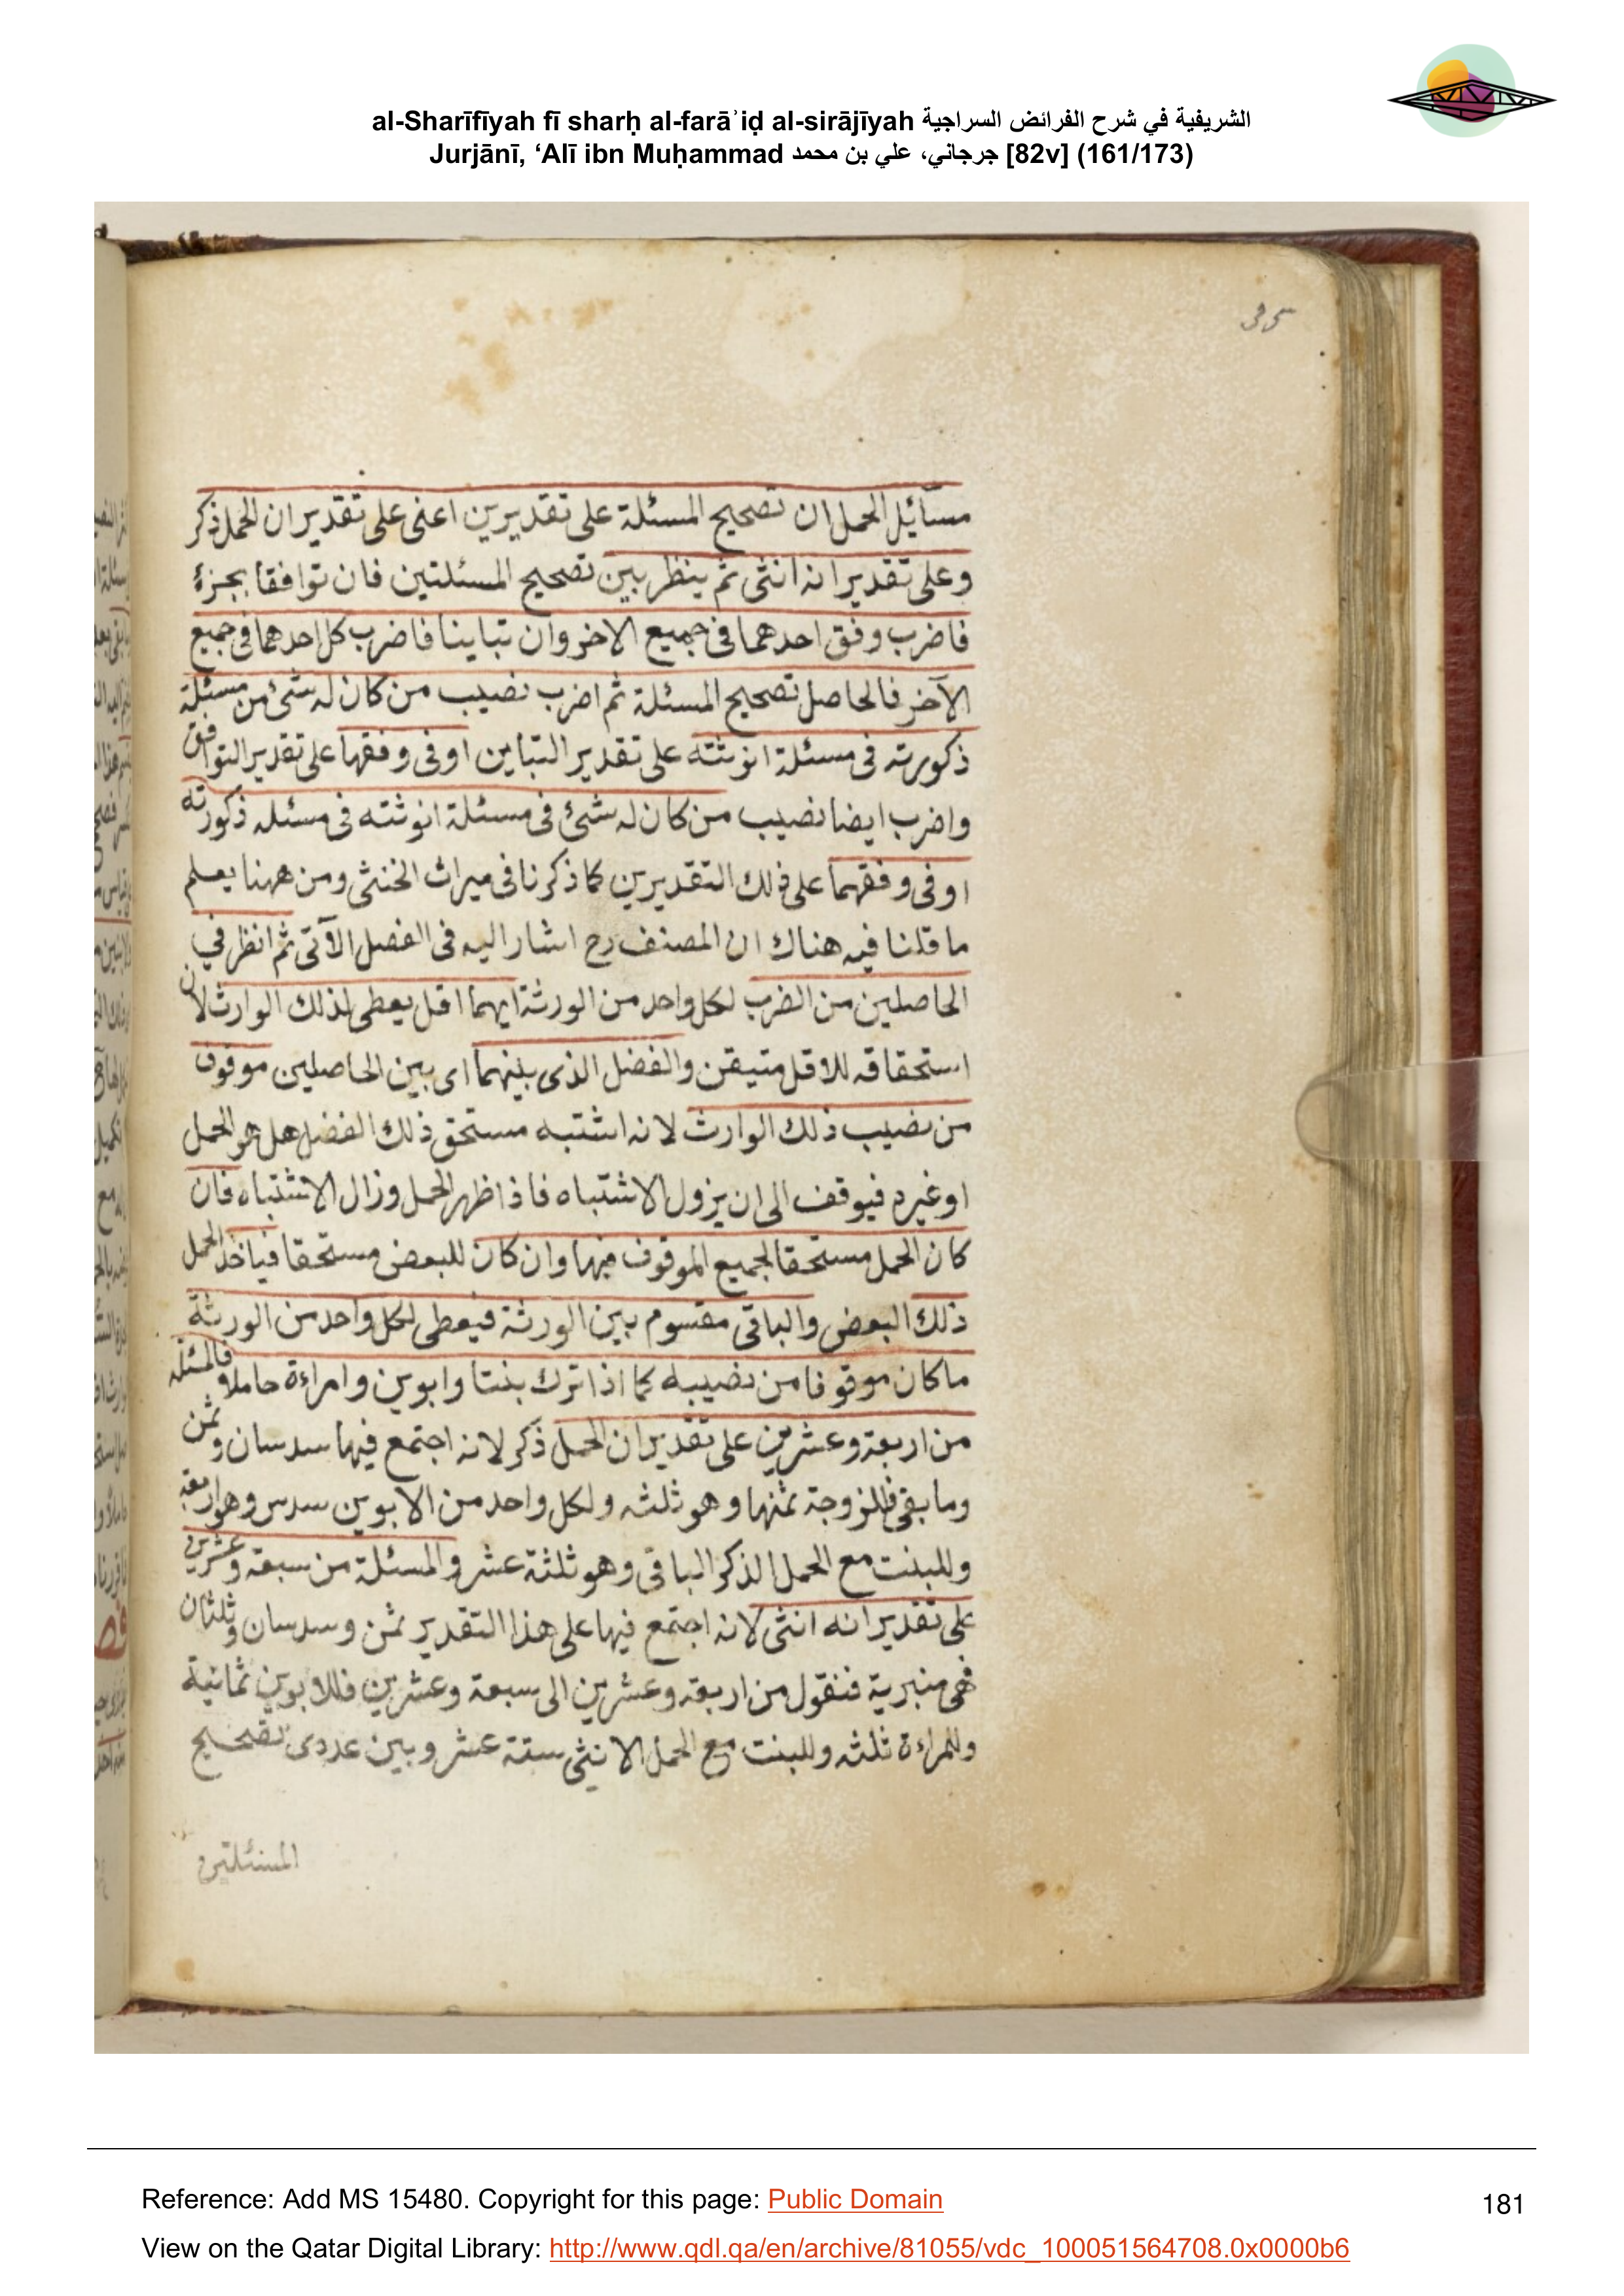 al-Sharīfīyah fī sharḥ al-farāʾiḍ al-sirājīyah الشريفية في شرح الفرائض السراجية
Jurjānī, ‘Alī ibn Muḥammad جرجاني، علي بن محمد [82v] (161/173)
مسائل الحمل ان تصحيح المسئلة على تقديرين اعنى على تقدير ان الحمل ذكر
وعلى تقدير انه انثى ثم ينظر بين تصحيح المسئلتين فان توافقا بجزء
فاضرب وفق احدهما فى جميع الاخر وان تباينا فاضرب كل احدهما فى جميع
الآخر فالحاصل تصحيح المسئلة ثم اضرب نصيب من كان له شئ من مسئلة
ذكورته فى مسئلة انوثته على تقدير التباين او فى وفقها على تقدير التوافق
واضرب ايضا نصيب من كان له شئ فى مسئلة انوثته فى مسئله ذكورته
او فى وفقهما على ذلك التقديرين كما ذكرنا فى ميراث الخنثى ومن ههنا يعلم
ما قلنا فيه هناك ان المصنف رح اشار اليه فى الفصل الآتى ثم انظر في
الحاصلين من الضرب لكل واحد من الورثة ايهما اقل يعطى لذلك الوارث لان
استحقاقه للاقل متيقن والفضل الذى بينهما اى بين الحاصلين موقوف
من نصيب ذلك الوارث لانه اشتبه مستحق ذلك الفضل هل هو الحمل
او غيره فيوقف الى ان يزول الاشتباه فاذا ظهر الحمل وزال الاشتباه فان
كان الحمل مستحقا لجميع الموقوف فبها وان كان للبعض مستحقا فياخذ الحمل
ذلك البعض والباقى مقسوم بين الورثة فيعطى لكل واحد من الورثة
ماكان موقوفا من نصيبه كما اذا ترك بنتا وابوين وامراءة حاملا فالمسئلة
من اربعة وعشرين على تقدير ان الحمل ذكر لانه اجتمع فيها سدسان وثمن
وما بقى فللزوجة ثمنها وهو ثلثه ولكل واحد من الابوين سدس وهو اربعة
وللبنت مع الحمل الذكر الباقى وهو ثلثة عشر والمسئلة من سبعة وعشرين
على تقدير انه انثى لانه اجتمع فيها على هذا التقدير ثمن وسدسان وثلثان
فهى منبرية فنقول من اربعة وعشرين الى سبعة وعشرين فللابوين ثمانية
وللمراءة ثلثه وللبنت مع الحمل الانثى ستة عشر وبين عددى تصحيح
المسئلتين
Reference: Add MS 15480. Copyright for this page: Public Domain
181
View on the Qatar Digital Library: http://www.qdl.qa/en/archive/81055/vdc_100051564708.0x0000b6